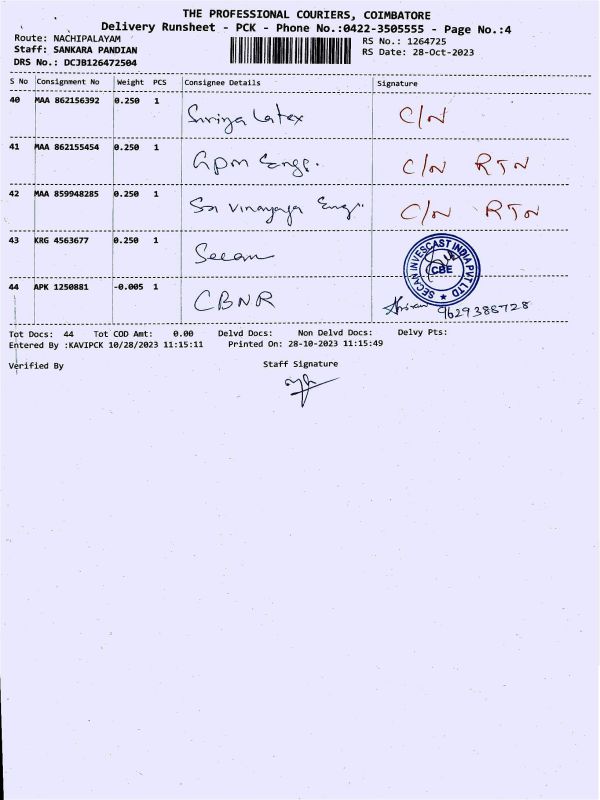 THE PROFESSIONAL COURIERS, COIMBATORE
Delivery Runsheet - PCK - Phone No.:0422-3505555 - Page No.:4
Route: NACHIPALAYAM
RS No.: 1264725
Staff: SANKARA PANDIAN
RS Date: 28-Oct-2023
DRS No.: DCJB126472504
S No Consignment No Weight PCS Consignee Details Signature
40 MAA 862156392 0.250 1 Suriya Latex C/N
41 MAA 862155454 0.250 1 Gpm Engg. C/N RTN
42 MAA 859948285 0.250 1 Sri Vinayaga Engg. C/N RTN
43 KRG 4563677 0.250 1 Secan
SECAN INVESCAST INDIA PVT LTD
CBE
44 APK 1250881 -0.005 1 CBNR
9629388728
Tot Docs: 44 Tot COD Amt: 0.00 Delvd Docs: Non Delvd Docs: Delvy Pts:
Entered By :KAVIPCK 10/28/2023 11:15:11 Printed On: 28-10-2023 11:15:49
Verified By Staff Signature